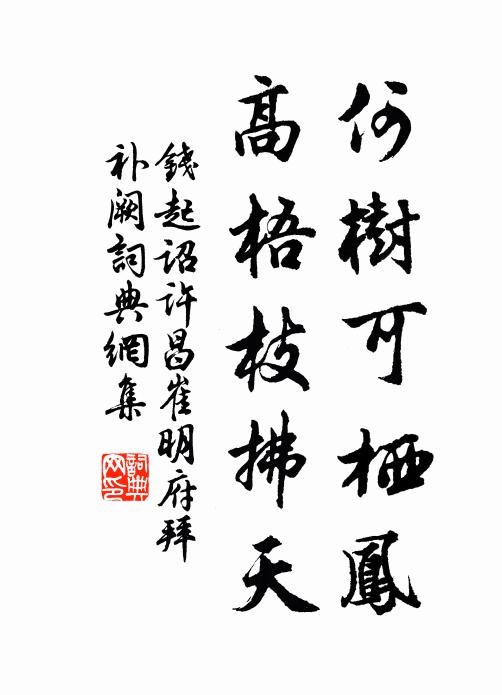 何樹可栖鳳
高梧枝拂天
錢起詔許昌崔明府拜
补阙詞典網集
詞典
网印